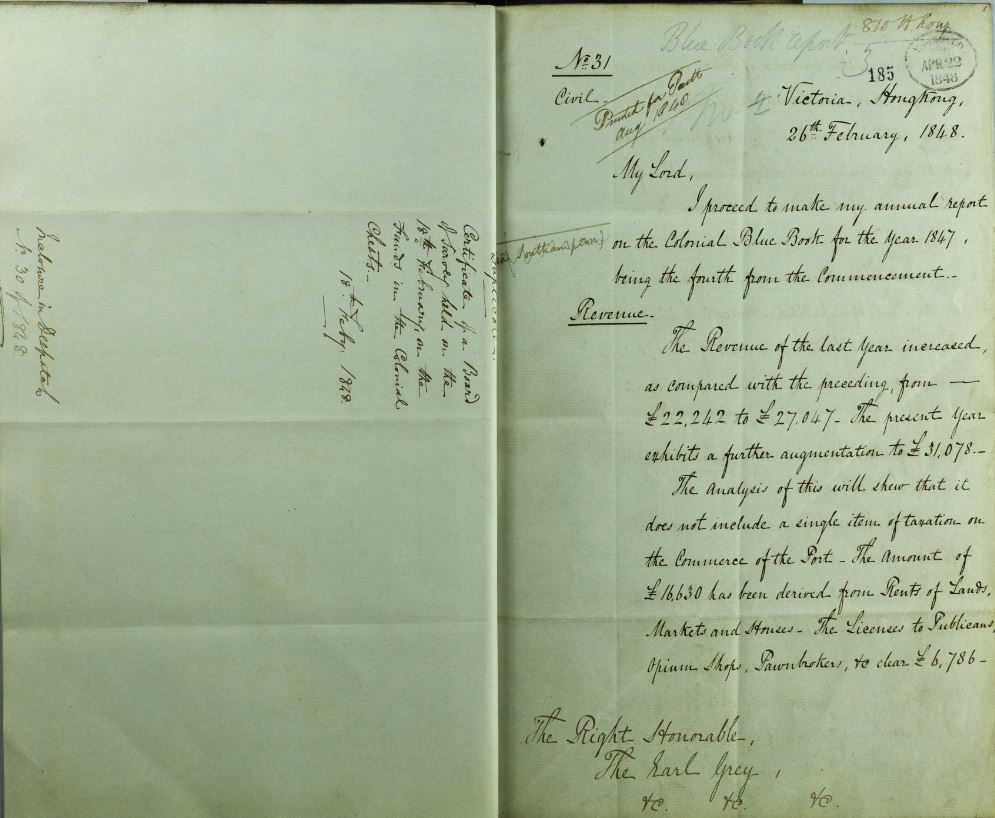 Enclosure in Despatch
No. 30 of 1848
Certificate of a Board
of Survey held on the
18th February, on the
Funds in the Colonial
Chests.-
18th Feby. 1848
Blue Book report
810 H Kong
No. 31
185
APR 22
1848
Civil.
Printed for Parlt
Aug 1848
No 4
Victoria, Hongkong,
26th February, 1848.
My Lord,
I proceed to make my annual report
(Southampton)
on the Colonial Blue Book for the Year 1847,
being the fourth from the Commencement.-
Revenue.-
The Revenue of the last Year increased,
as compared with the preceding, from —
£22,242 to £27,047- The present Year
exhibits a further augmentation to £31,078.-
The Analysis of this will shew that it
does not include a single item of taxation on
the Commerce of the Port - The Amount of
£16,630 has been derived from Rents of Lands,
Markets and Houses - The Licenses to Publicans,
Opium Shops, Pawnbrokers, &c clear £6,786-
The Right Honorable,
The Earl Grey,
&c. &c. &c.